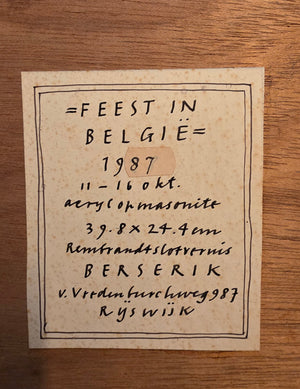 =FEEST IN
BELGIË=
1987
11-16 okt.
acryl op masonite
39.8 x 24.4 cm
Rembrandtslotvernis
BERSERIK
v. Vredenburchweg 987
RYSWIJK